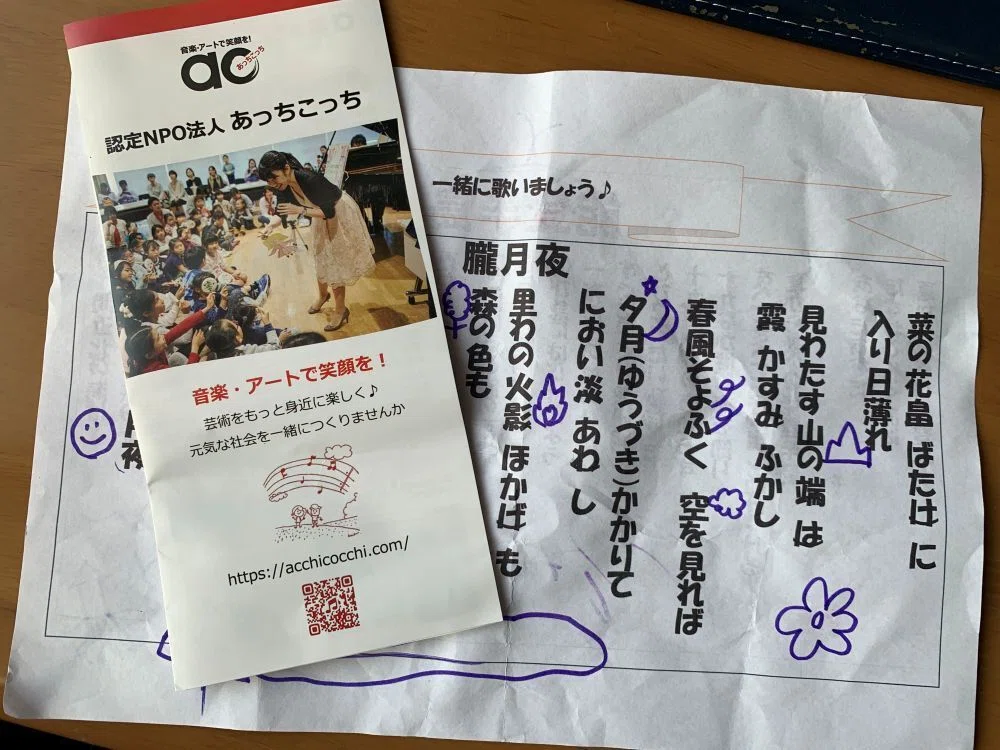 音楽・アートで笑顔を!
ac
あっちこっち
認定NPO法人 あっちこっち
音楽・アートで笑顔を!
芸術をもっと身近に楽しく♪
元気な社会を一緒につくりませんか
https://acchicocchi.com/
一緒に歌いましょう♪
朧月夜
菜の花畠 ばたけ に
入り日薄れ
見わたす山の端 は
霞 かすみ ふかし
春風そよふく 空を見れば
夕月(ゆうづき)かかりて
におい淡 あわ し
里わの火影 ほかげ も
森の色も